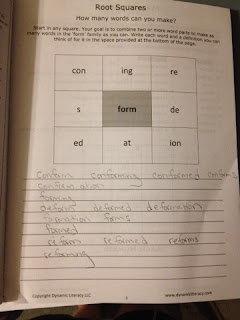 Root Squares
How many words can you make?
Start in any square. Your goal is to combine two or more word parts to make as
many words in the 'form' family as you can. Write each word and a definition you can
think of for it in the space provided at the bottom of the page.
con ing re
s form de
ed at ion
conform conforming conformed conforms
conformation
forming
deform deformed deformation
formation forms
formed
reform reformed reforms
reforming
Copyright Dynamic Literacy LLC
www.dynamicliteracy.com